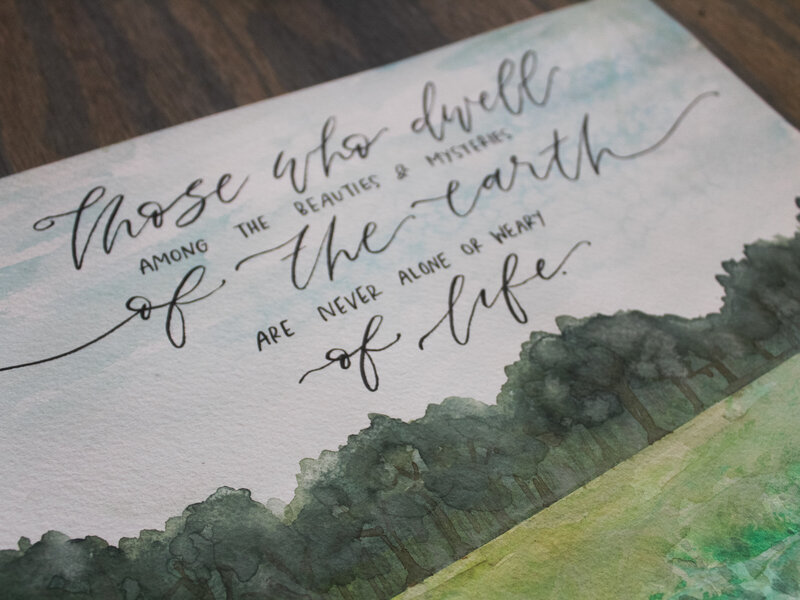 Those who dwell
AMONG THE BEAUTIES & MYSTERIES
of the earth
ARE NEVER ALONE OR WEARY
of life.